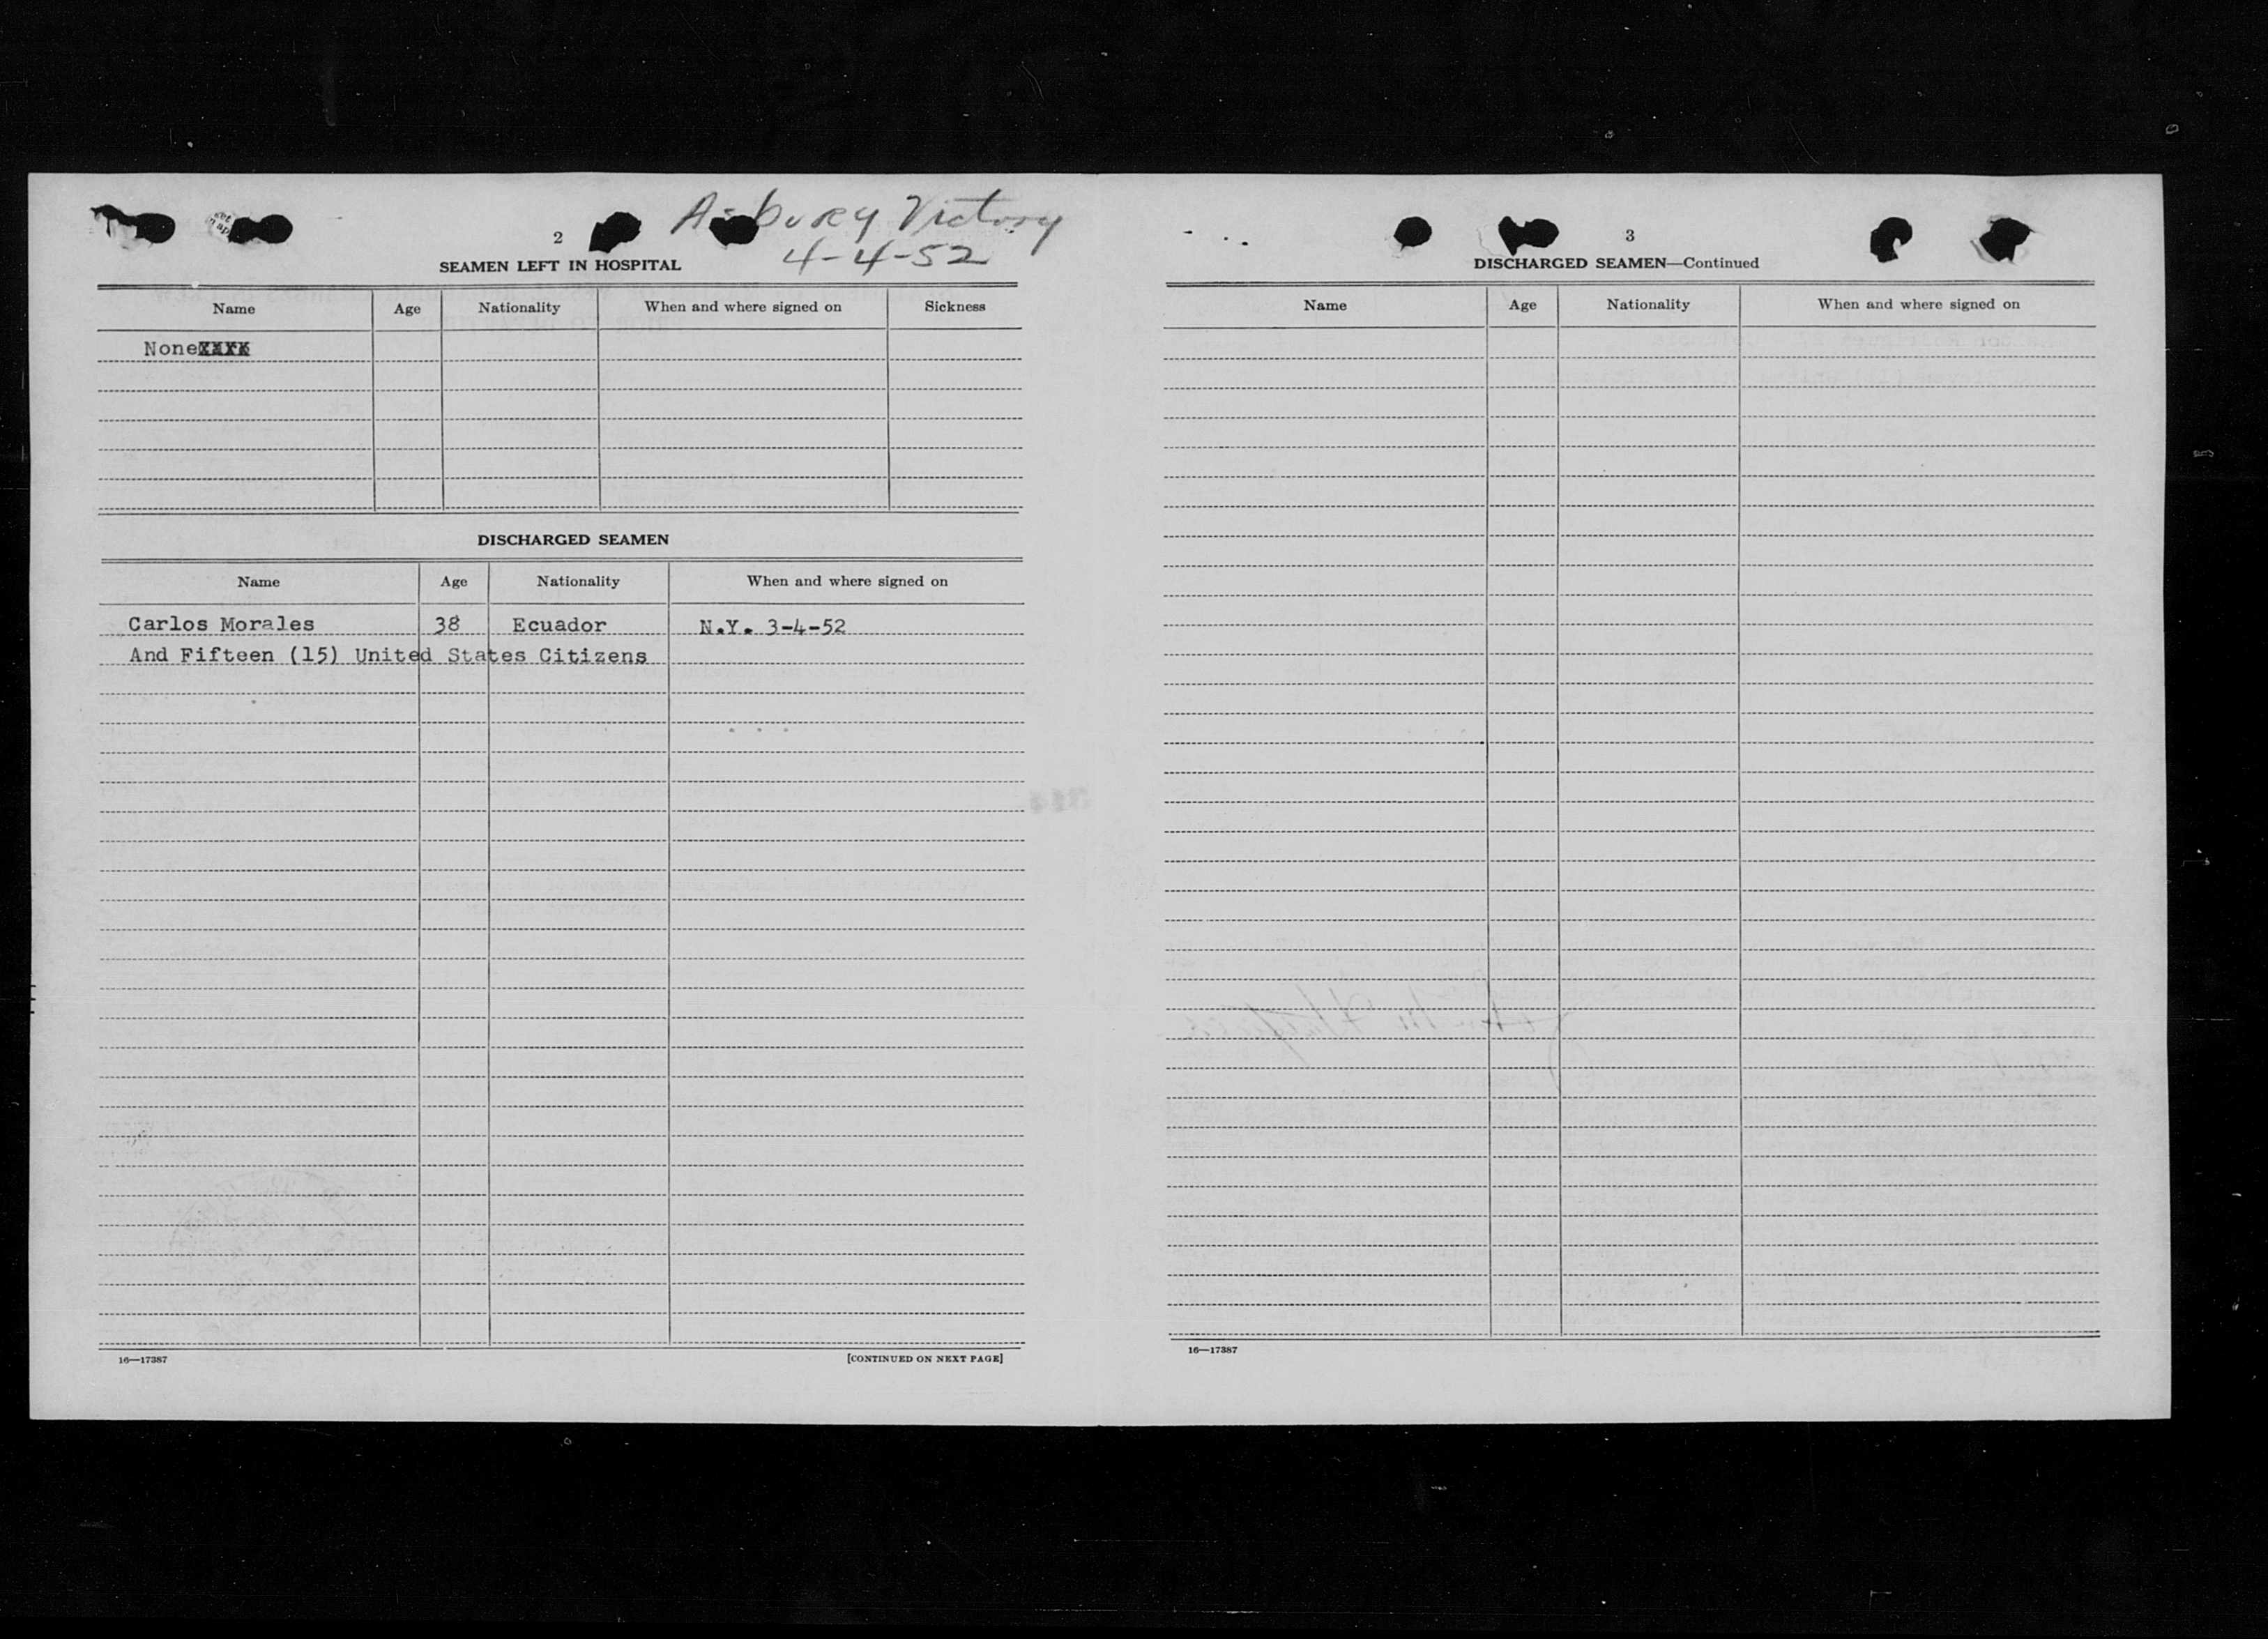 Asbury Victory
4-4-52
2
SEAMEN LEFT IN HOSPITAL
Name Age Nationality When and where signed on Sickness
None
DISCHARGED SEAMEN
Name Age Nationality When and where signed on
Carlos Morales 38 Ecuador N.Y. 3-4-52
And Fifteen (15) United States Citizens
16—17387 [CONTINUED ON NEXT PAGE]
3
DISCHARGED SEAMEN—Continued
Name Age Nationality When and where signed on
16—17387